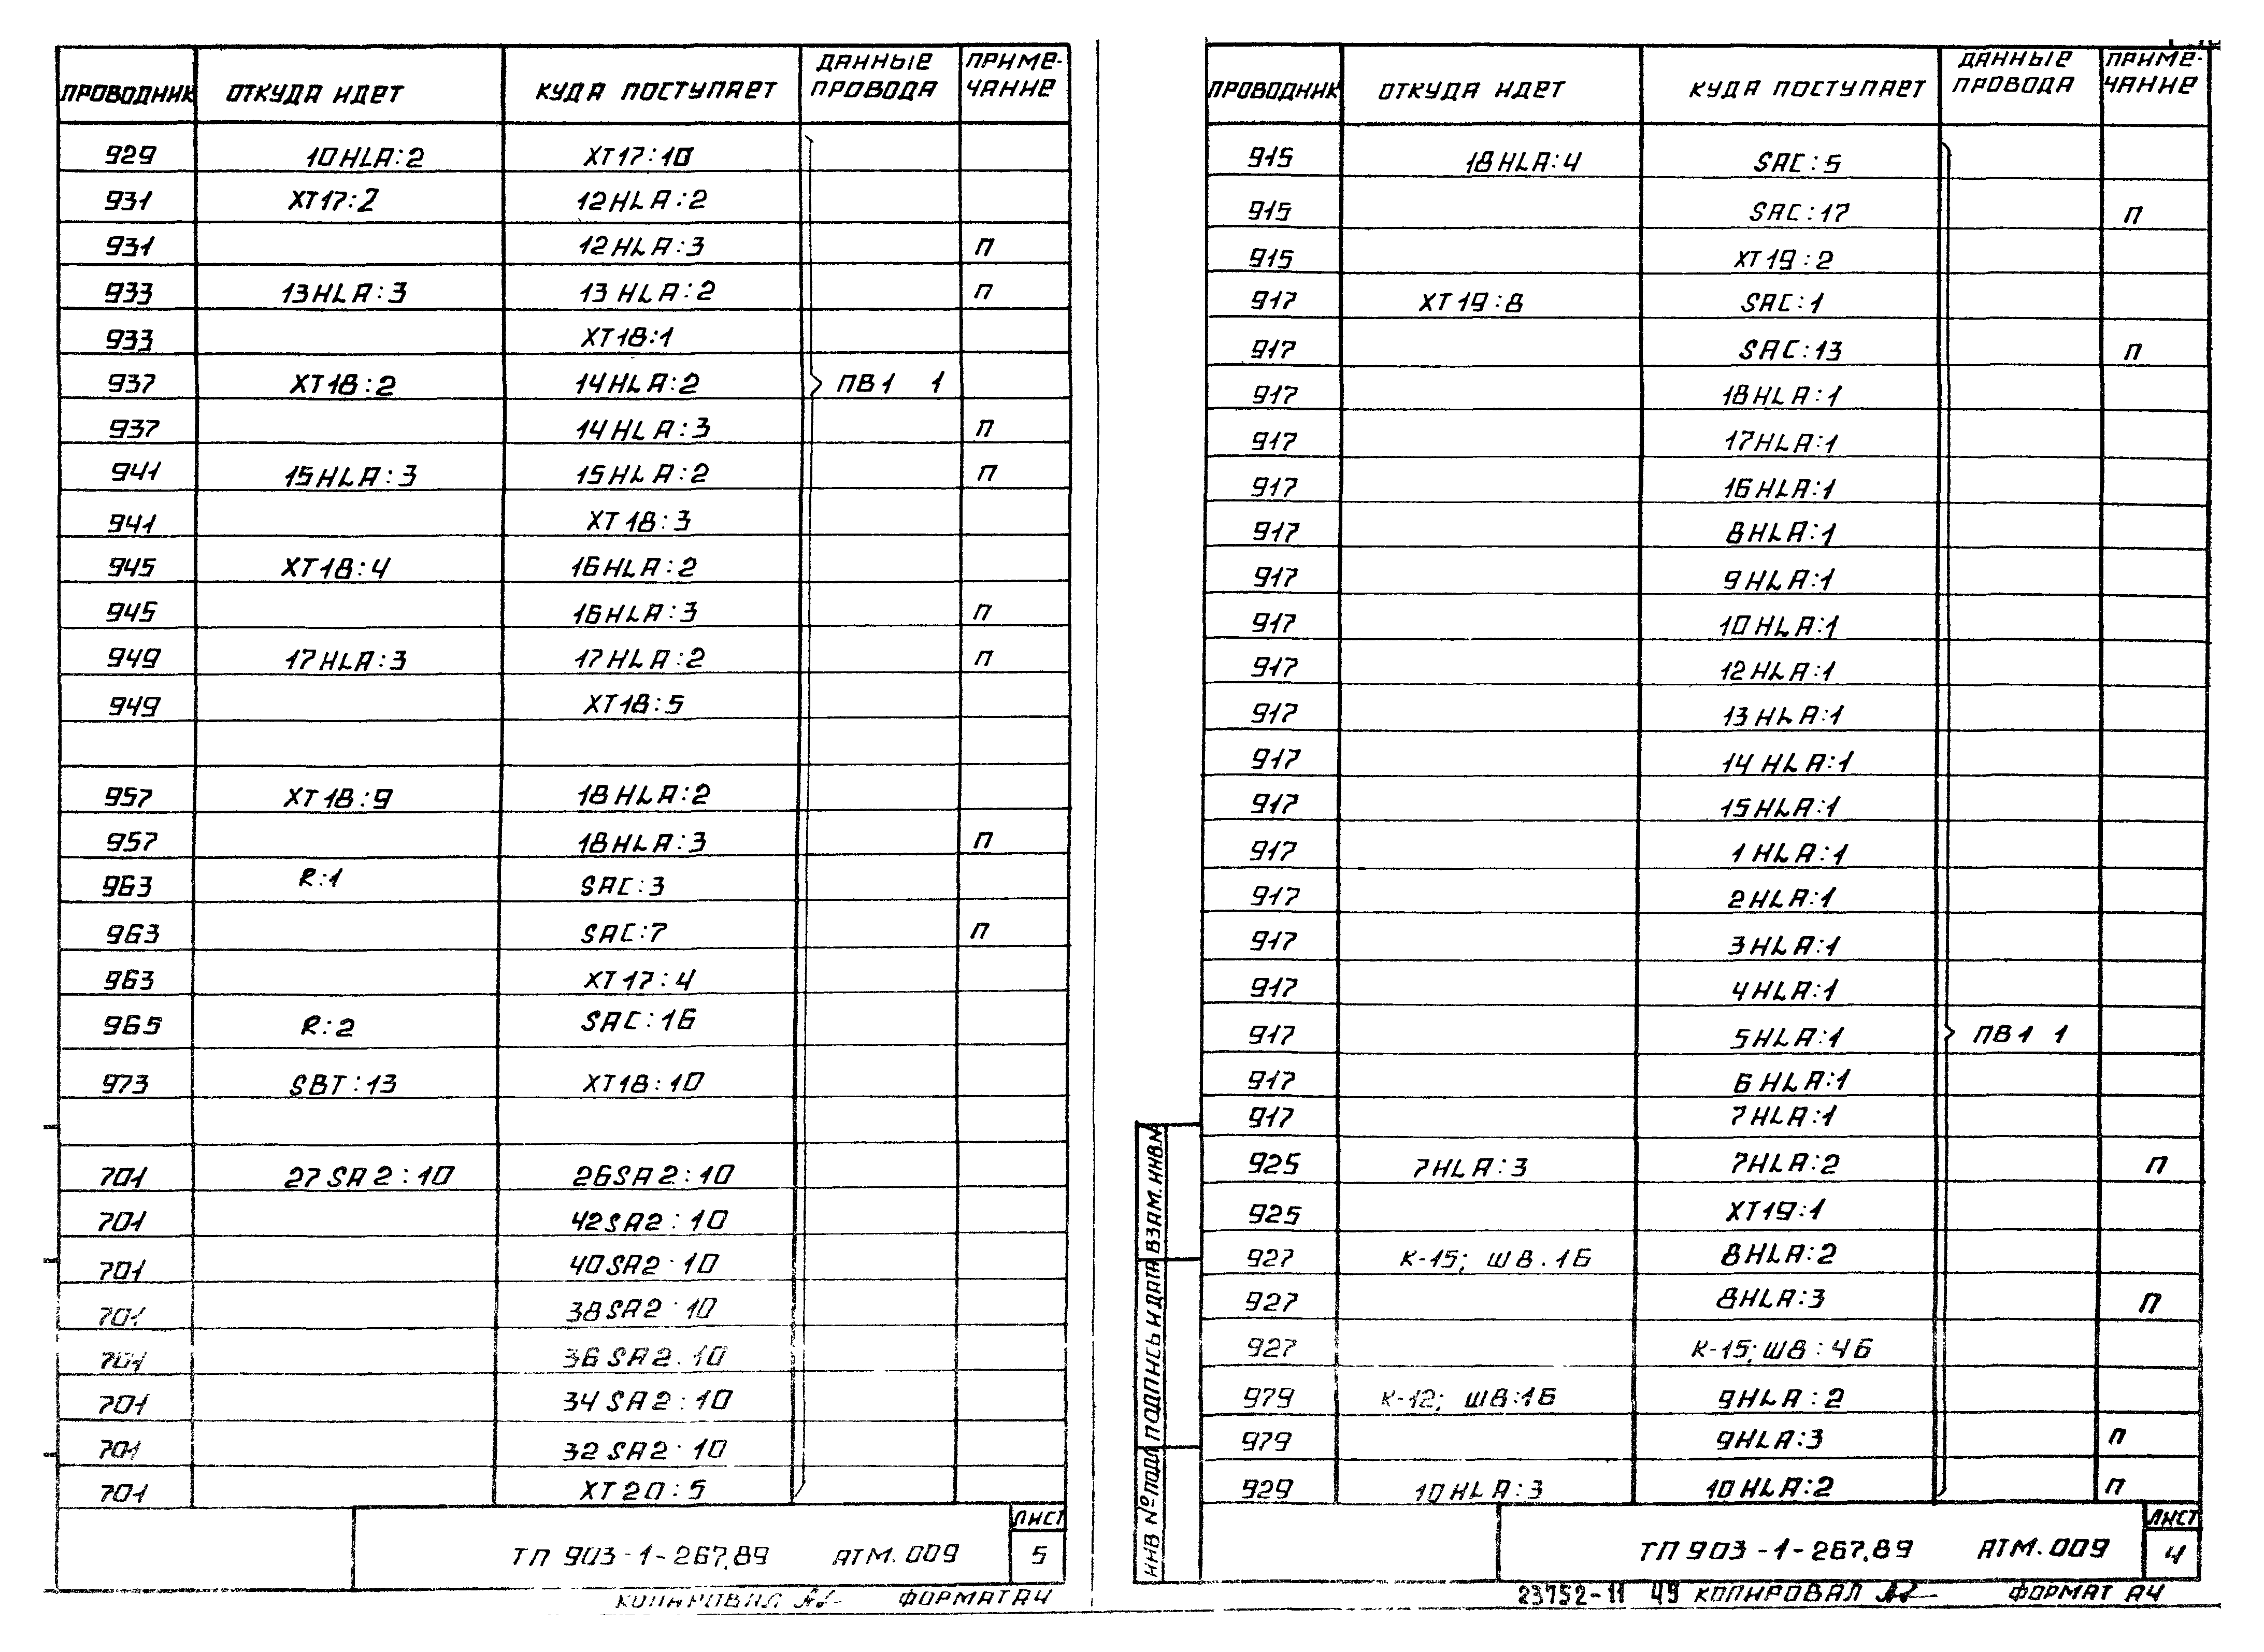 ПРОВОДНИК ОТКУДА ИДЕТ КУДА ПОСТУПАЕТ ДАННЫЕ ПРОВОДА ПРИМЕ-ЧАНИЕ
929 10HLA:2 XT17:10
931 XT17:2 12HLA:2
931 12HLA:3 П
933 13HLA:3 13HLA:2 П
933 XT18:1
937 XT18:2 14HLA:2 ПВ1 1
937 14HLA:3 П
941 15HLA:3 15HLA:2 П
941 XT18:3
945 XT18:4 16HLA:2
945 16HLA:3 П
949 17HLA:3 17HLA:2 П
949 XT18:5
957 XT18:9 18HLA:2
957 18HLA:3 П
963 R:1 SAC:3
963 SAC:7 П
963 XT17:4
965 R:2 SAC:16
973 SBT:13 XT18:10
701 27SA2:10 26SA2:10
701 42SA2:10
701 40SA2:10
701 38SA2:10
701 36SA2:10
701 34SA2:10
701 32SA2:10
701 XT20:5
ТП 903-1-267.89 АТМ.009 ЛИСТ 5
КОПИРОВАЛ ФОРМАТ А4
ПРОВОДНИК ОТКУДА ИДЕТ КУДА ПОСТУПАЕТ ДАННЫЕ ПРОВОДА ПРИМЕ-ЧАНИЕ
915 18HLA:4 SAC:5
915 SAC:17 П
915 XT19:2
917 XT19:8 SAC:1
917 SAC:13 П
917 18HLA:1
917 17HLA:1
917 16HLA:1
917 8HLA:1
917 9HLA:1
917 10HLA:1
917 12HLA:1
917 13HLA:1
917 14HLA:1
917 15HLA:1
917 1HLA:1
917 2HLA:1
917 3HLA:1
917 4HLA:1
917 5HLA:1 ПВ1 1
917 6HLA:1
917 7HLA:1
925 7HLA:3 7HLA:2 П
925 XT19:1
927 К-15; ШВ.16 8HLA:2
927 8HLA:3 П
927 К-15; ШВ:46
979 К-12; ШВ:16 9HLA:2
979 9HLA:3 П
929 10HLA:3 10HLA:2 П
ИНВ №ПОДЛ ПОДПИСЬ И ДАТА ВЗАМ. ИНВ.№
ТП 903-1-267.89 АТМ.009 ЛИСТ 4
23752-11 49 КОПИРОВАЛ ФОРМАТ А4